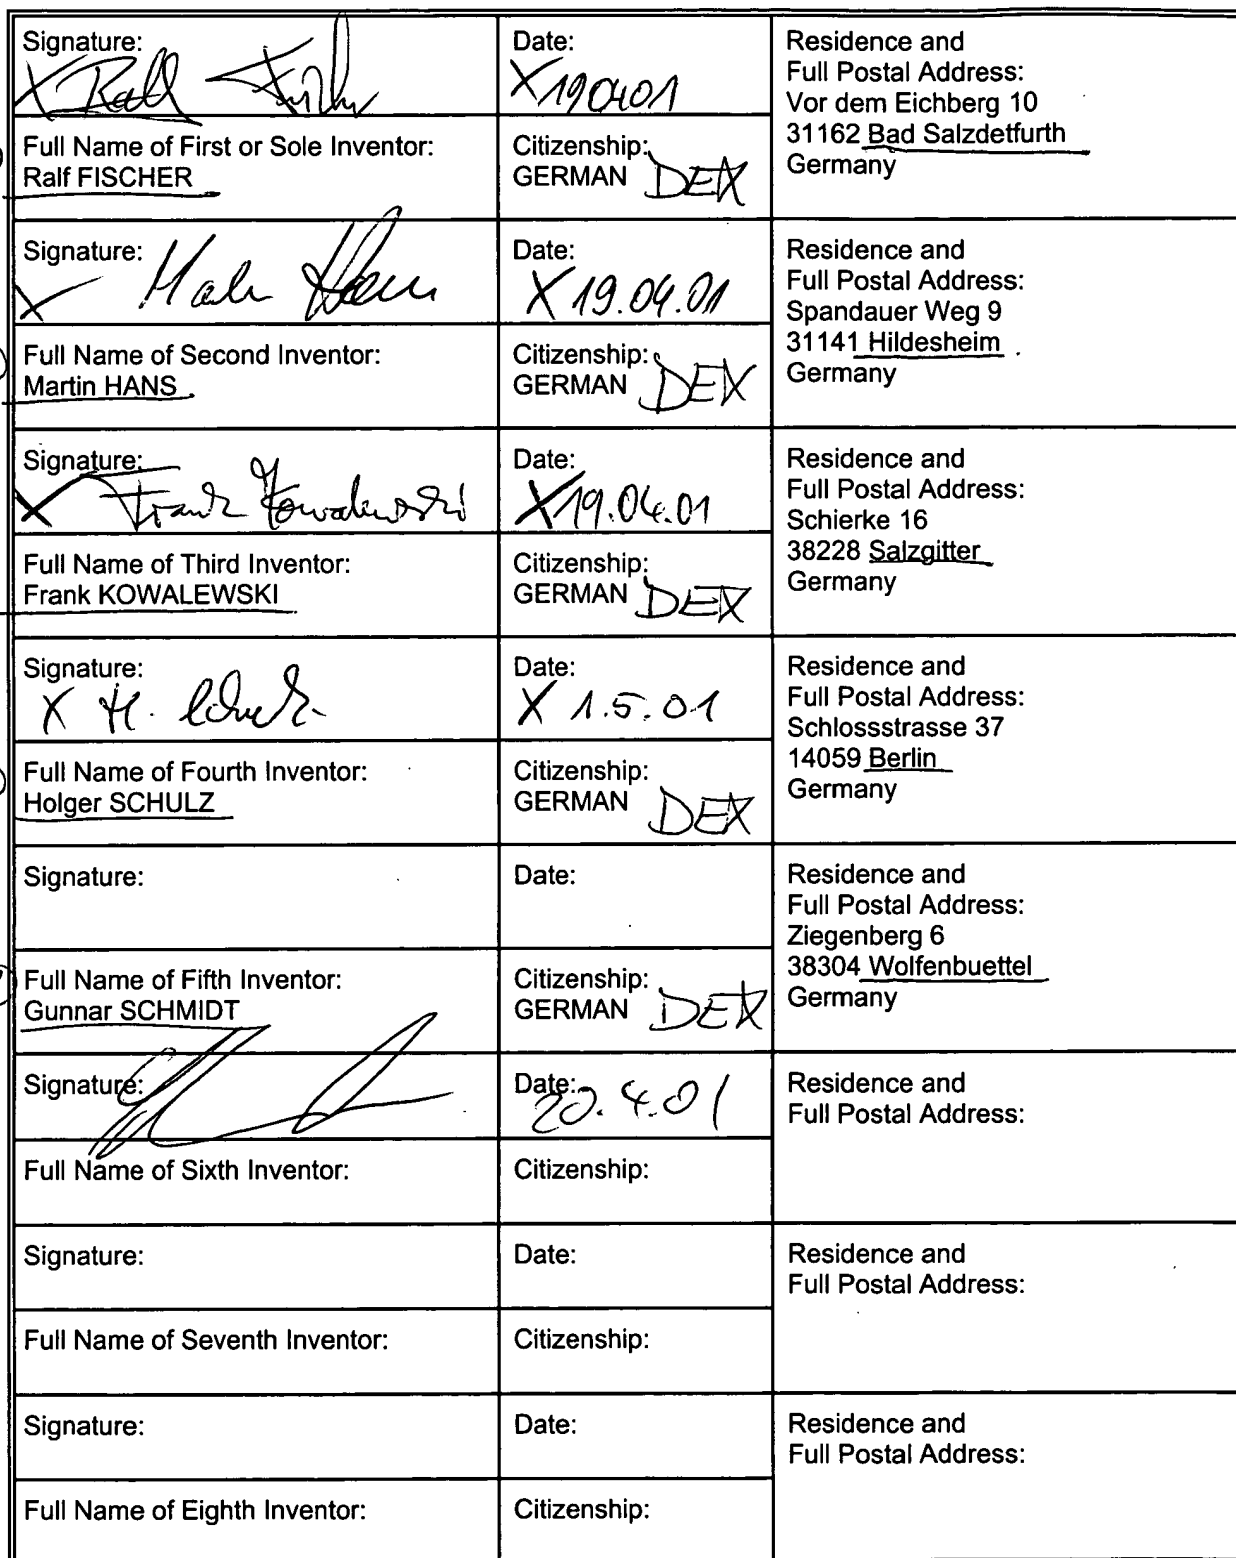 Signature:
X Ralf Fischer
Date:
X 190401
Residence and
Full Postal Address:
Vor dem Eichberg 10
31162 Bad Salzdetfurth
Germany
Full Name of First or Sole Inventor:
Ralf FISCHER
Citizenship:
GERMAN DEX
Signature:
X
Date:
X 19.04.01
Residence and
Full Postal Address:
Spandauer Weg 9
31141 Hildesheim
Germany
Full Name of Second Inventor:
Martin HANS
Citizenship:
GERMAN DEX
Signature:
X Frank Kowalewski
Date:
X 19.04.01
Residence and
Full Postal Address:
Schierke 16
38228 Salzgitter
Germany
Full Name of Third Inventor:
Frank KOWALEWSKI
Citizenship:
GERMAN DEX
Signature:
X H.
Date:
X 1.5.01
Residence and
Full Postal Address:
Schlossstrasse 37
14059 Berlin
Germany
Full Name of Fourth Inventor:
Holger SCHULZ
Citizenship:
GERMAN DEX
Signature:
Date:
Residence and
Full Postal Address:
Ziegenberg 6
38304 Wolfenbuettel
Germany
Full Name of Fifth Inventor:
Gunnar SCHMIDT
Citizenship:
GERMAN DEX
Signature:
Date:
20.4.01
Residence and
Full Postal Address:
Full Name of Sixth Inventor:
Citizenship:
Signature:
Date:
Residence and
Full Postal Address:
Full Name of Seventh Inventor:
Citizenship:
Signature:
Date:
Residence and
Full Postal Address:
Full Name of Eighth Inventor:
Citizenship: